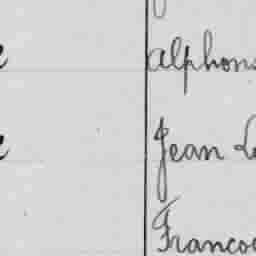 alphons
Jean L
Francoe